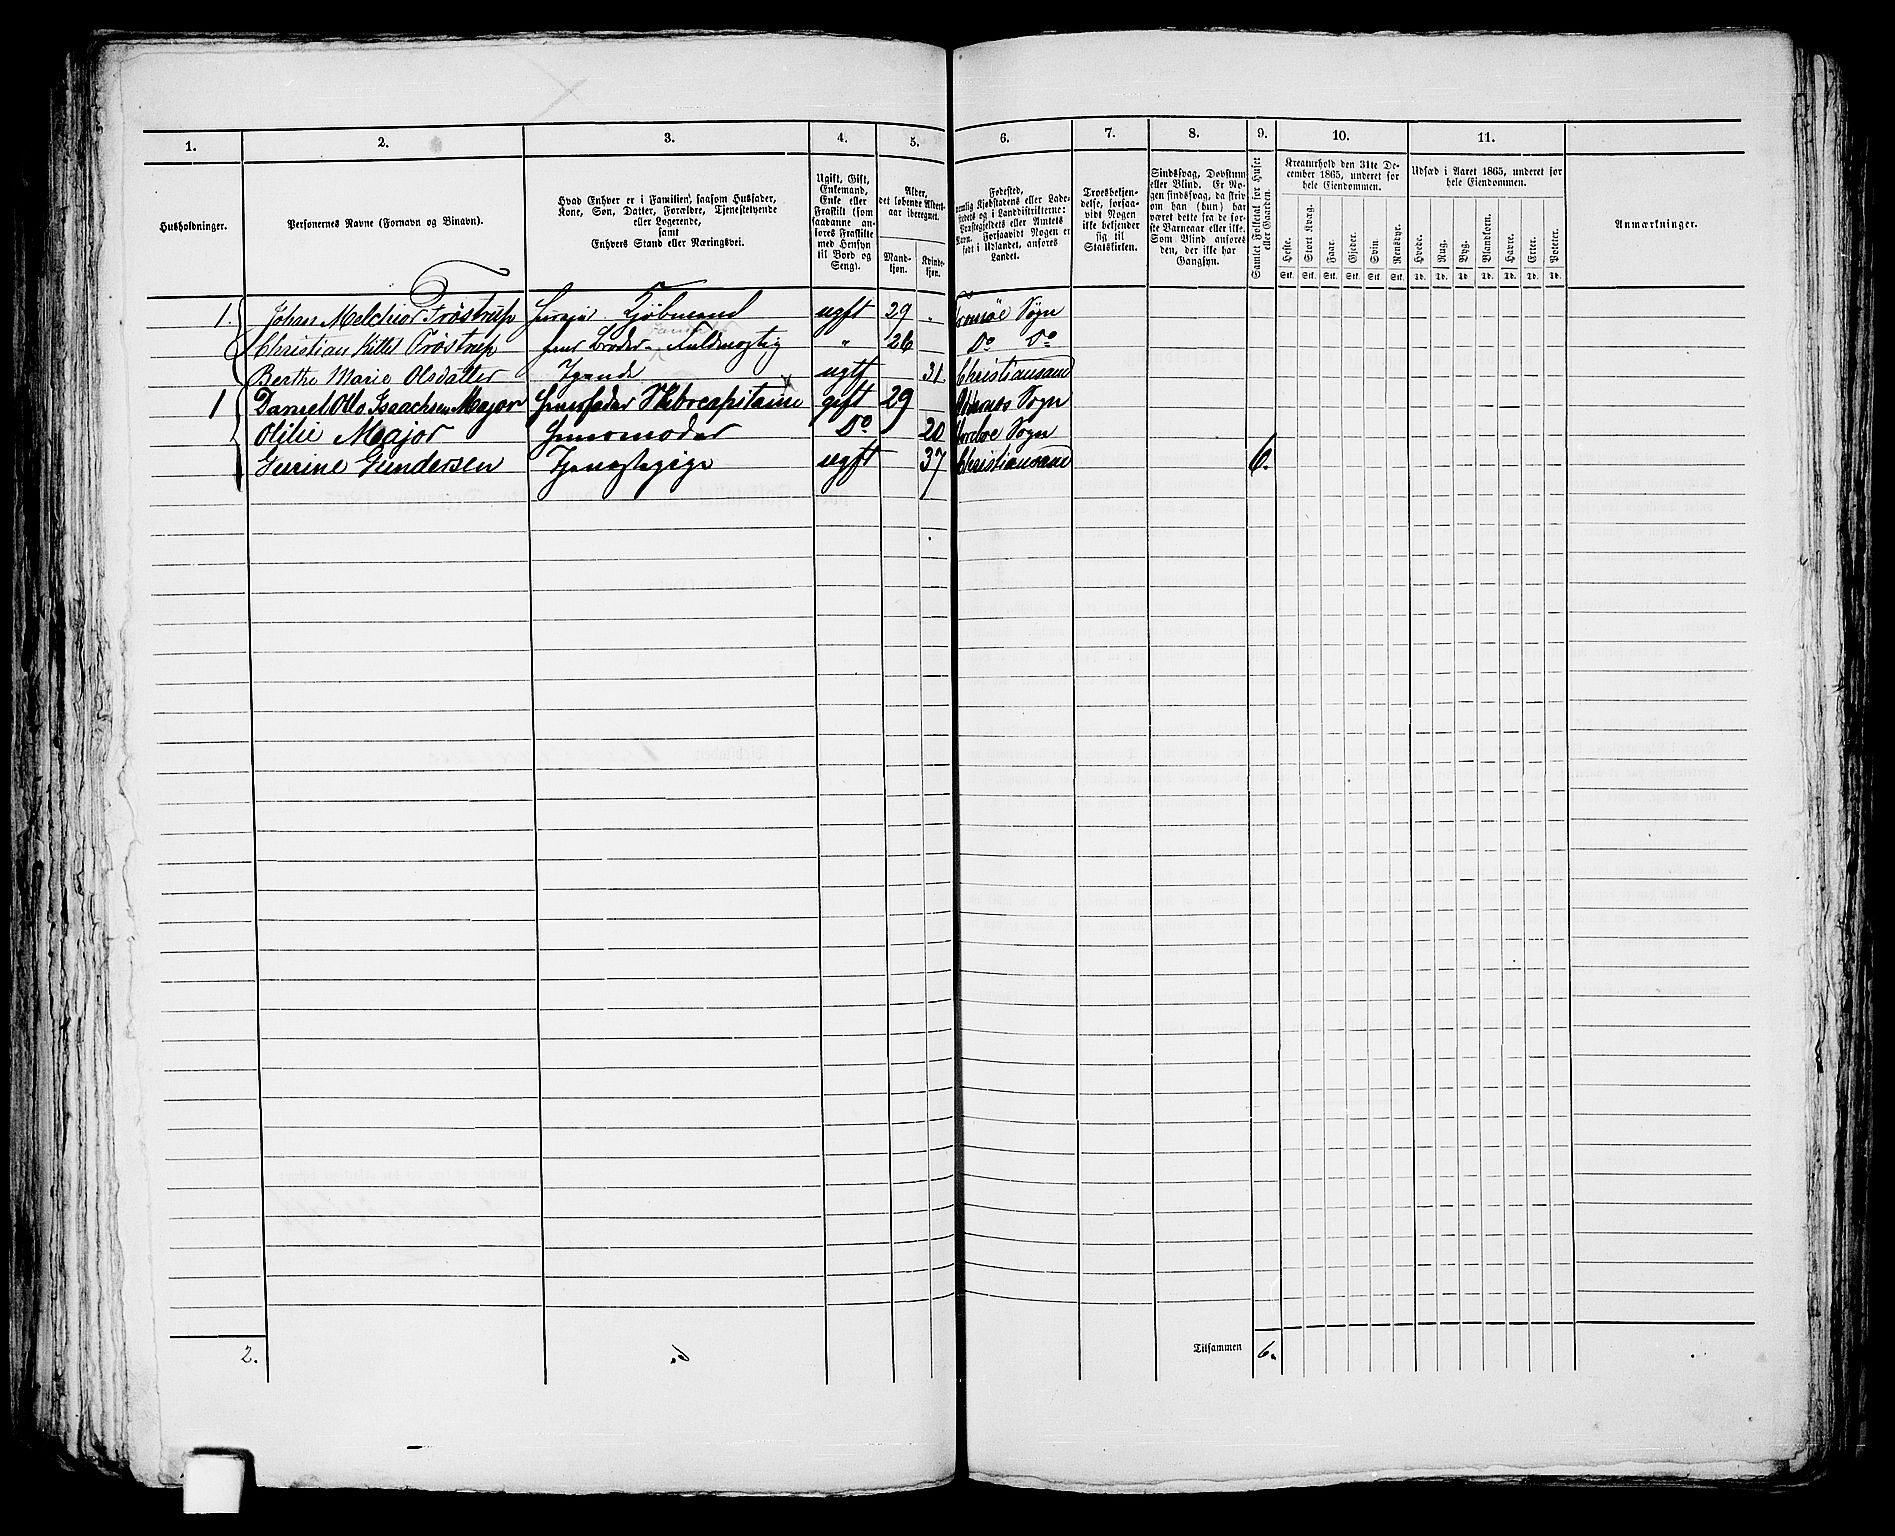 1. 2. 3. 4. 5. 6. 7. 8. 9. 10. 11.
Husholdninger.
Personernes Navne (Fornavn og Binavn).
Hvad Enhver er i Familien, saasom Husfader,
Kone, Søn, Datter, Forældre, Tjenestetyende
eller Logerende,
samt
Enhvers Stand eller Næringsvei.
Ugift, Gift,
Enkemand,
Enke eller
Fraskilt (som
saadanne an-
føres Fraskilte
med Hensyn
til Bord og
Seng).
Alder,
det løbende Alders-
aar iberegnet.
Mand-
kjøn.
Kvinde-
kjøn.
Fødested,
nemlig Kjøbstadens eller Lade-
stedets og i Landdistrikterne:
Præstegjeldets eller Amtets
Navn. Forsaavidt Nogen er
født i Udlandet, anføres
Landet.
Troesbekjen-
delse, forsaa-
vidt Nogen
ikke bekjender
sig til
Statskirken.
Sindssvag, Døvstum
eller Blind. Er No-
gen sindssvag, da skriv
om han (hun) har
været dette fra de før-
ste Barneaar eller ikke.
Som Blind anføres
den, der ikke har
Gangsyn.
Samlet Folketal for Huset
eller Gaarden.
Kreaturhold den 31te De-
cember 1865, underet for
hele Eiendommen.
Heste. Stort Kvæg. Faar. Gjeder. Svin. Rensdyr.
Stk. Stk. Stk. Stk. Stk. Stk.
Udsæd i Aaret 1865, underet for
hele Eiendommen.
Hvede. Rug. Byg. Blandkorn. Havre. Erter. Poteter.
Td. Td. Td. Td. Td. Td. Td.
Anmærkninger.
1. Johan Melchior Trøstrup Kjøbmand ugift 29 Tromöe Sogn
Christian Kittel Trøstrup hans Broder Fuldmægtig " 26 Do Do
Berthe Marie Olsdatter Tyende ugift 31 Christiansand
1 Daniel Otto Isaachsen Major Huusfader Skibscapitaine gift 29 Sogn
Otilie Major Huusmoder Do 20 Sogn
Gurine Gundersen Tjenestepige ugift 37 Christiansand 6.
2. Tilsammen 6.